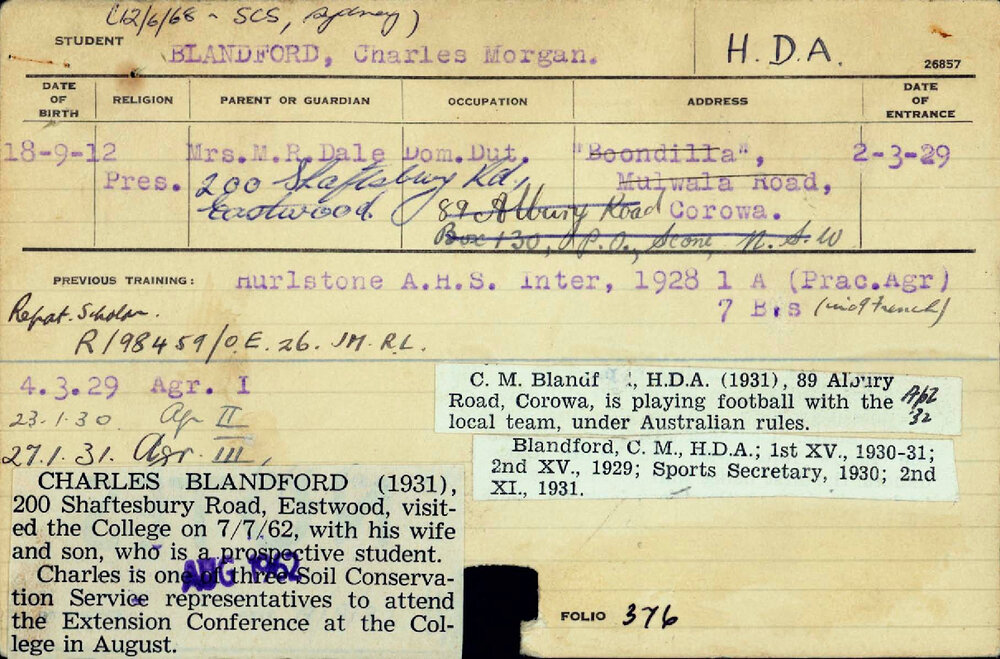 (12/6/68 - SCS, Sydney)
STUDENT
BLANDFORD, Charles Morgan.
H.D.A.
26857
DATE OF BIRTH
RELIGION
PARENT OR GUARDIAN
OCCUPATION
ADDRESS
DATE OF ENTRANCE
18-9-12
Pres.
Mrs.M.R.Dale
Dom.Dut.
"Boondilla",
2-3-29
200 Shaftesbury Rd.,
Mulwala Road,
Eastwood.
89 Albury Road
Corowa.
Box 130, P.O., Scone, N.S.W
PREVIOUS TRAINING:
Hurlstone A.H.S. Inter, 1928 1 A (Prac.Agr)
7 B.s (incl French)
Repat. Scholar.
R/98459/O.E. 26. JM. R.L.
4.3.29 Agr. I
23.1.30. Agr II
27.1.31. Agr. III,
C. M. Blandf , H.D.A. (1931), 89 Albury
Road, Corowa, is playing football with the
local team, under Australian rules.
32
Blandford, C. M., H.D.A.; 1st XV., 1930-31;
2nd XV., 1929; Sports Secretary, 1930; 2nd
XI., 1931.
CHARLES BLANDFORD (1931),
200 Shaftesbury Road, Eastwood, visit-
ed the College on 7/7/62, with his wife
and son, who is a prospective student.
Charles is one of three Soil Conserva-
tion Service representatives to attend
the Extension Conference at the Col-
lege in August.
AUG 1962
FOLIO 376